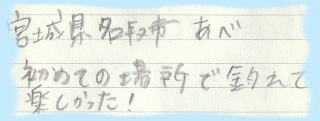 宮城県名取市 あべ
初めての場所で釣れて
楽しかった!